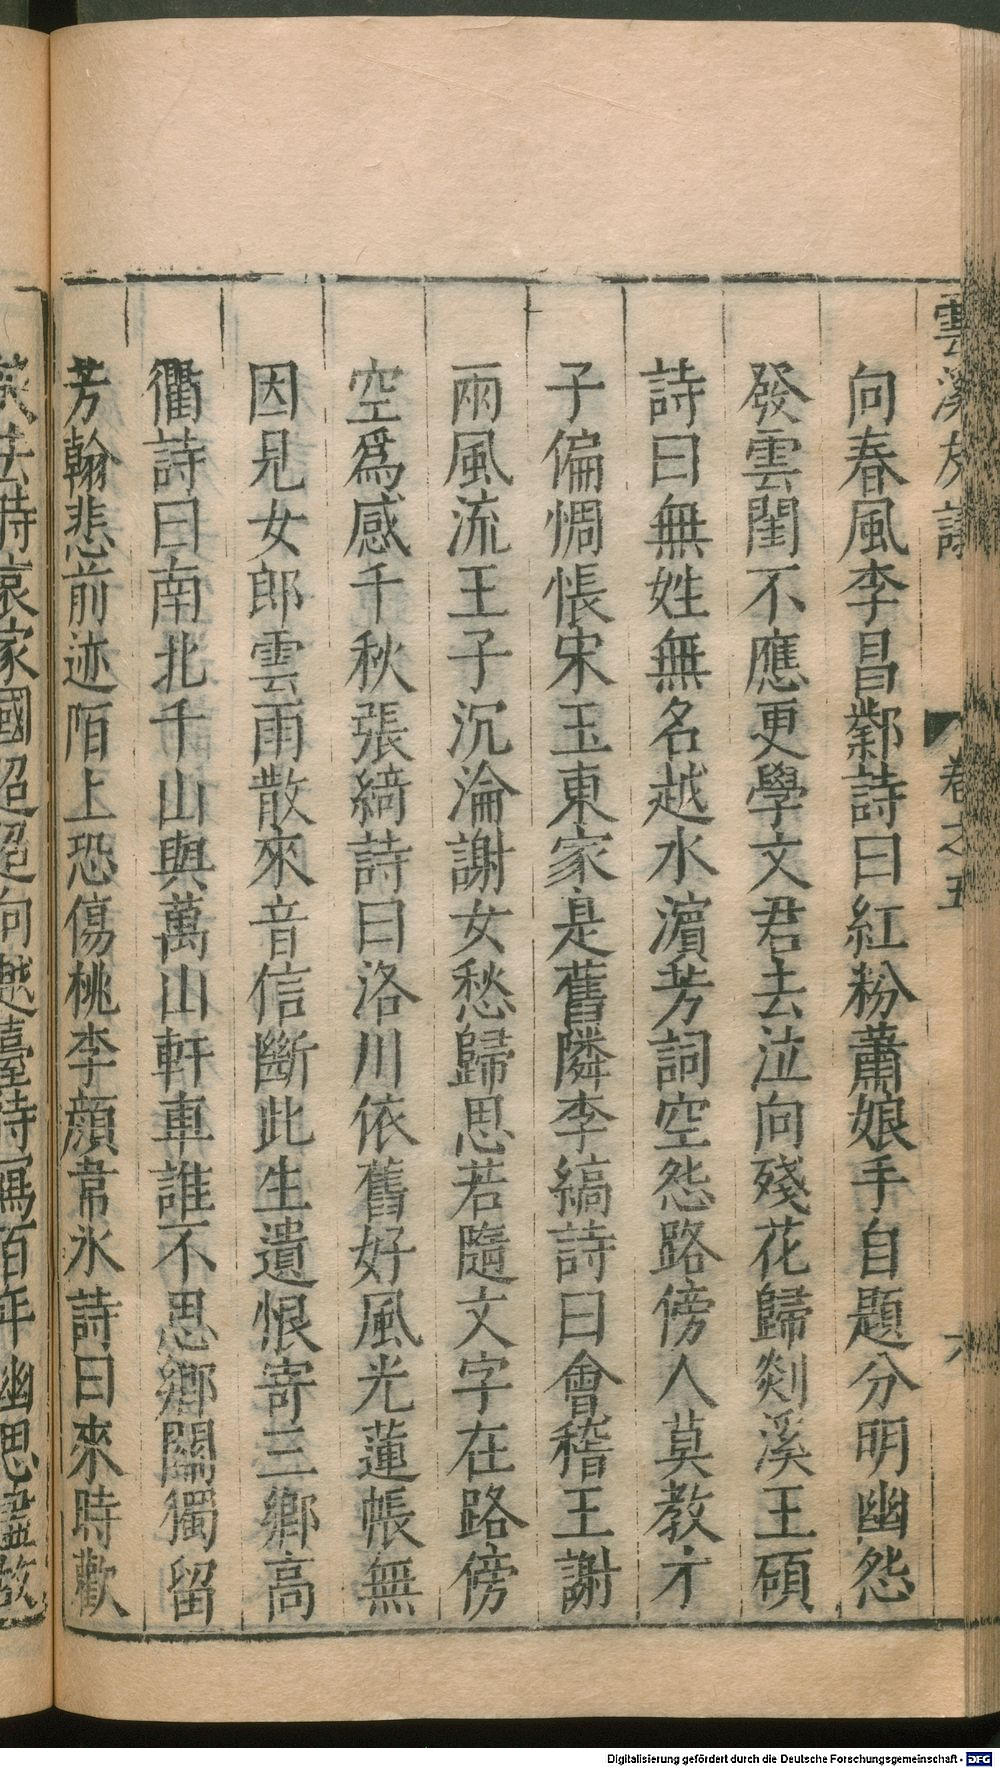 雲溪友議 卷之五 六
向春風李昌鄴詩曰紅粉蕭娘手自題分明幽怨
發雲閨不應更學文君去泣向殘花歸剡溪王碩
詩曰無姓無名越水濵芳詞空怨路傍人莫教才
子偏惆悵宋玉東家是舊隣李縞詩曰會稽王謝
兩風流王子沉淪謝女愁歸思若隨文字在路傍
空爲感千秋張綺詩曰洛川依舊好風光蓮帳無
因見女郎雲雨散來音信斷此生遺恨寄三鄉高
衢詩曰南北千山與萬山軒車誰不思鄉關獨留
芳翰悲前迹陌上恐傷桃李顏韋氷詩曰來時歡
Digitalisierung gefördert durch die Deutsche Forschungsgemeinschaft - DFG